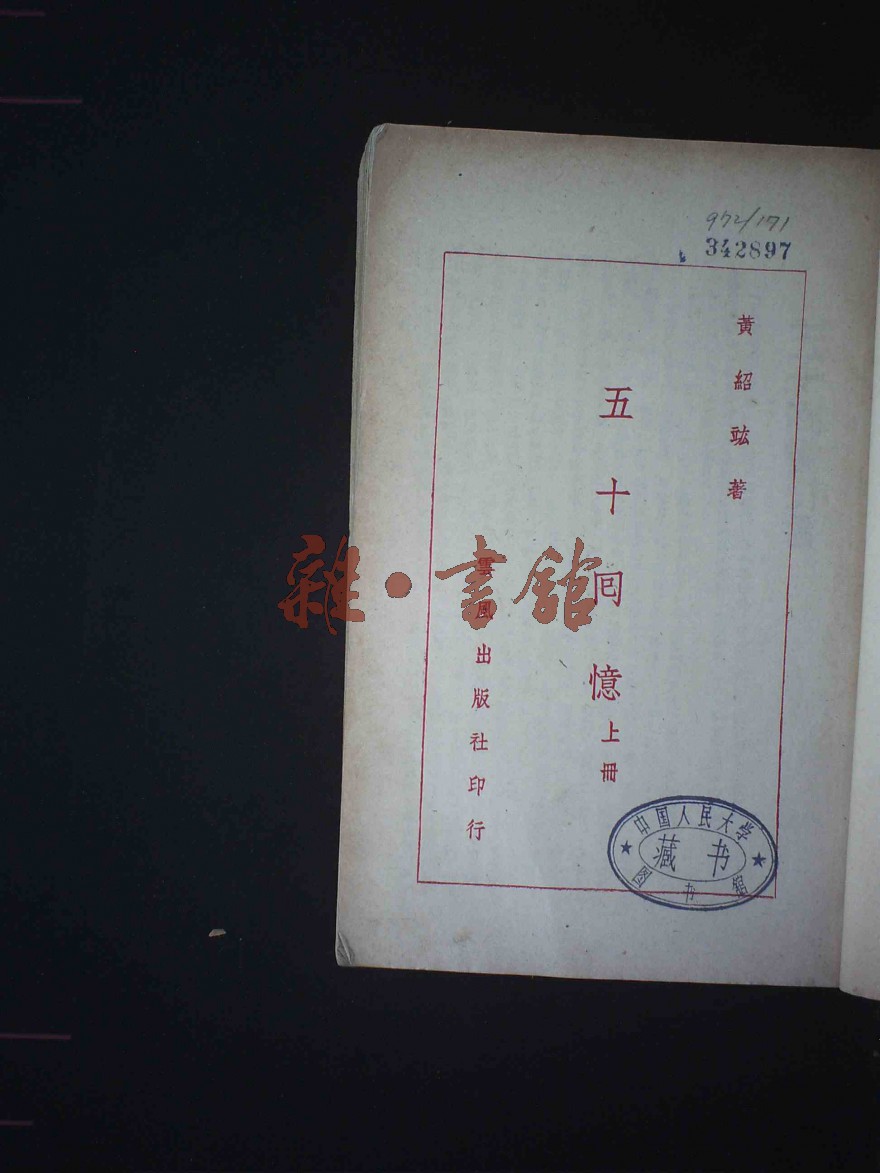 972/171
342897
黃紹竑著
五十囘憶上冊
雲風出版社印行
雜·書館
中国人民大学
藏书
图书馆